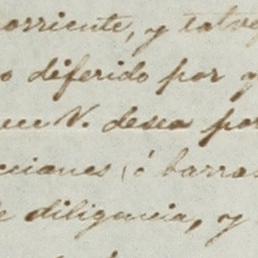 corriente, y talvez
o diferido por
que V. desea por
cciones, ó barra
de diligencia, y